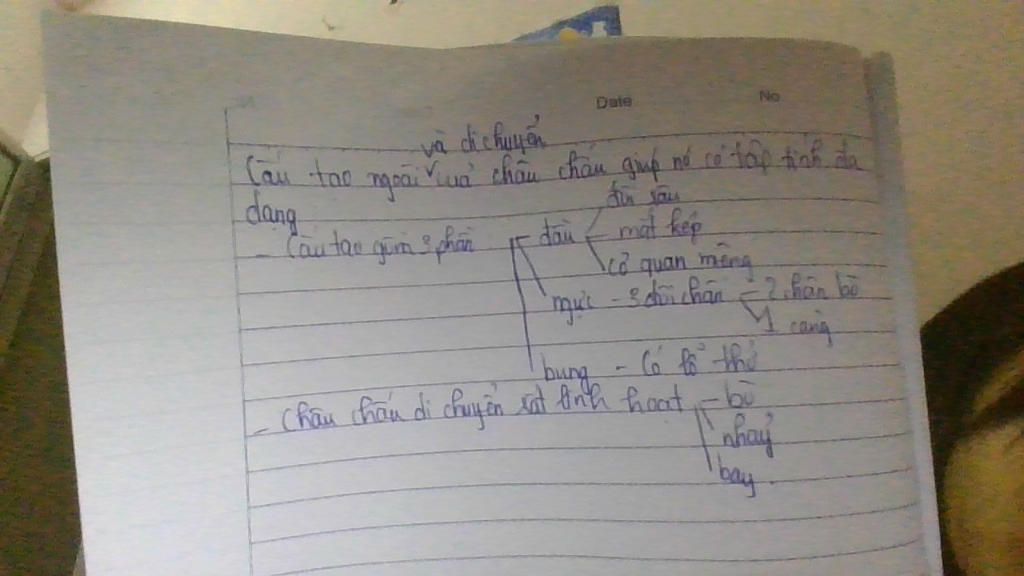 Date No
và di chuyển
Cấu tạo ngoài của châu chấu giúp nó có tập tính đa
dạng
- Cấu tạo gồm 3 phần - đầu - mắt kép
cơ quan miệng
ngực - 3 đôi chân - 2 chân bò
1 càng
bụng - Có lỗ thở
- Châu chấu di chuyển rất linh hoạt - bò
nhảy
bay.